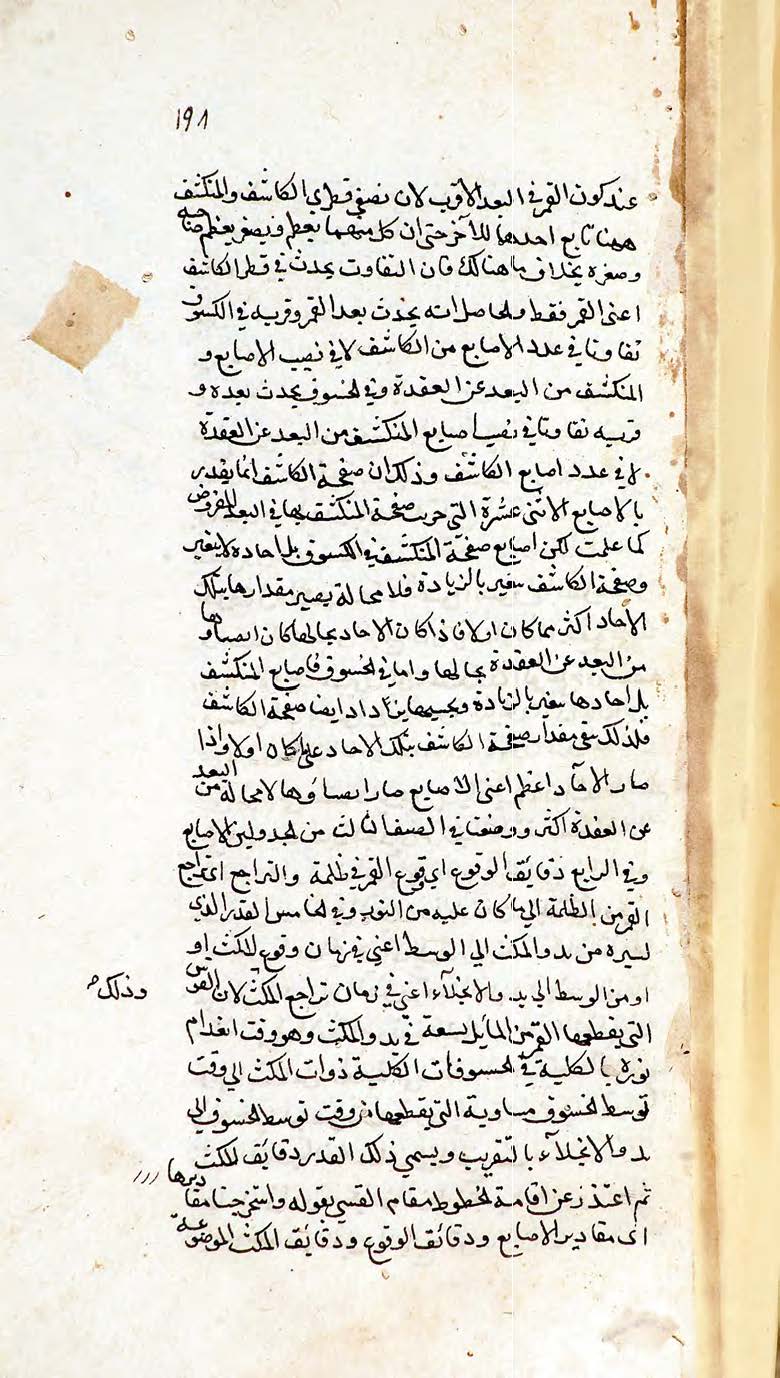 ١٩٨
عند كون القمر في البعد الاقرب لان نصفي قطري الكاشف والمنكشف
ههنا تابع احدهما للآخر حتى ان كل منهما يعظم ويصغر بعظم صاحبه
وصغره بخلاف ما هنالك فان التفاوت يحدث في قطر الكاشف
اعنى القمر فقط والحاصل انه يحدث بعد القمر وقربه في الكسوف
تفاوتا في عدد الاصابع من الكاشف لا في نصيب الاصابع و
المنكشف من البعد عن العقدة وفي الخسوف يحدث بعده و
قربه تفاوتا في نصيب اصابع المنكشف من البعد عن العقدة
لا في عدد اصابع الكاشف وذلك ان صفحة الكاشف انما يقدر
بالاصابع الاثنى عشرة التي جزيت صفحة المنكشف بها في البعد المفروض
كما علمت لكن اصابع صفحة المنكشف في الكسوف بل احاده لا يتغير
وصفحة الكاشف يتغير بالزيادة فلا محالة يصير مقدارها بتلك
الاحاد اكثر مما كان اولا فاذا كان الاحاد بحالها كان انصباؤها
من البعد عن العقدة بحالها واما في الخسوف فاصابع المنكشف
بل احادها يتغير بالزيادة وبحسبها يزداد ايضا صفحة الكاشف
فلذلك بقي مقدار صفحة الكاشف بتلك الاحاد على ما كان اولا واذا
صار الآحاد اعظم اعنى الاصابع صار انصباؤها لا محالة من البعد
عن العقدة اكثر ووضعنا في الصف الثالث من الجدولين الاصابع
وفي الرابع دقايق الوقوع اي وقوع القمر في ظلمة والتراجع اي تراجع
القمر من الظلمة الى ما كان عليه من النور وفي الخامس القدر الذي
لسيره من بدو المكث الى الوسط اعني في زمان وقوع المكث او
او من الوسط الى بدو الانجلاء اعني في زمان تراجع المكث لان القوس
وذلك
التي يقطعها القمر من المايل بسعة في بدو المكث وهو وقت انعدام
نوره بالكلية في الخسوفات الكلية ذوات المكث الى وقت
توسط الخسوف مساوية التي يقطعها من وقت توسط الخسوف الى
بدو الانجلاء بالتقريب ويسمي ذلك القدر دقايق المكث
ثم اعتذر عن اقامة الخطوط مقام القسي بقوله واستخرجنا مقاديرها
اى مقادير الاصابع ودقائق الوقوع ودقايق المكث الموضوعة